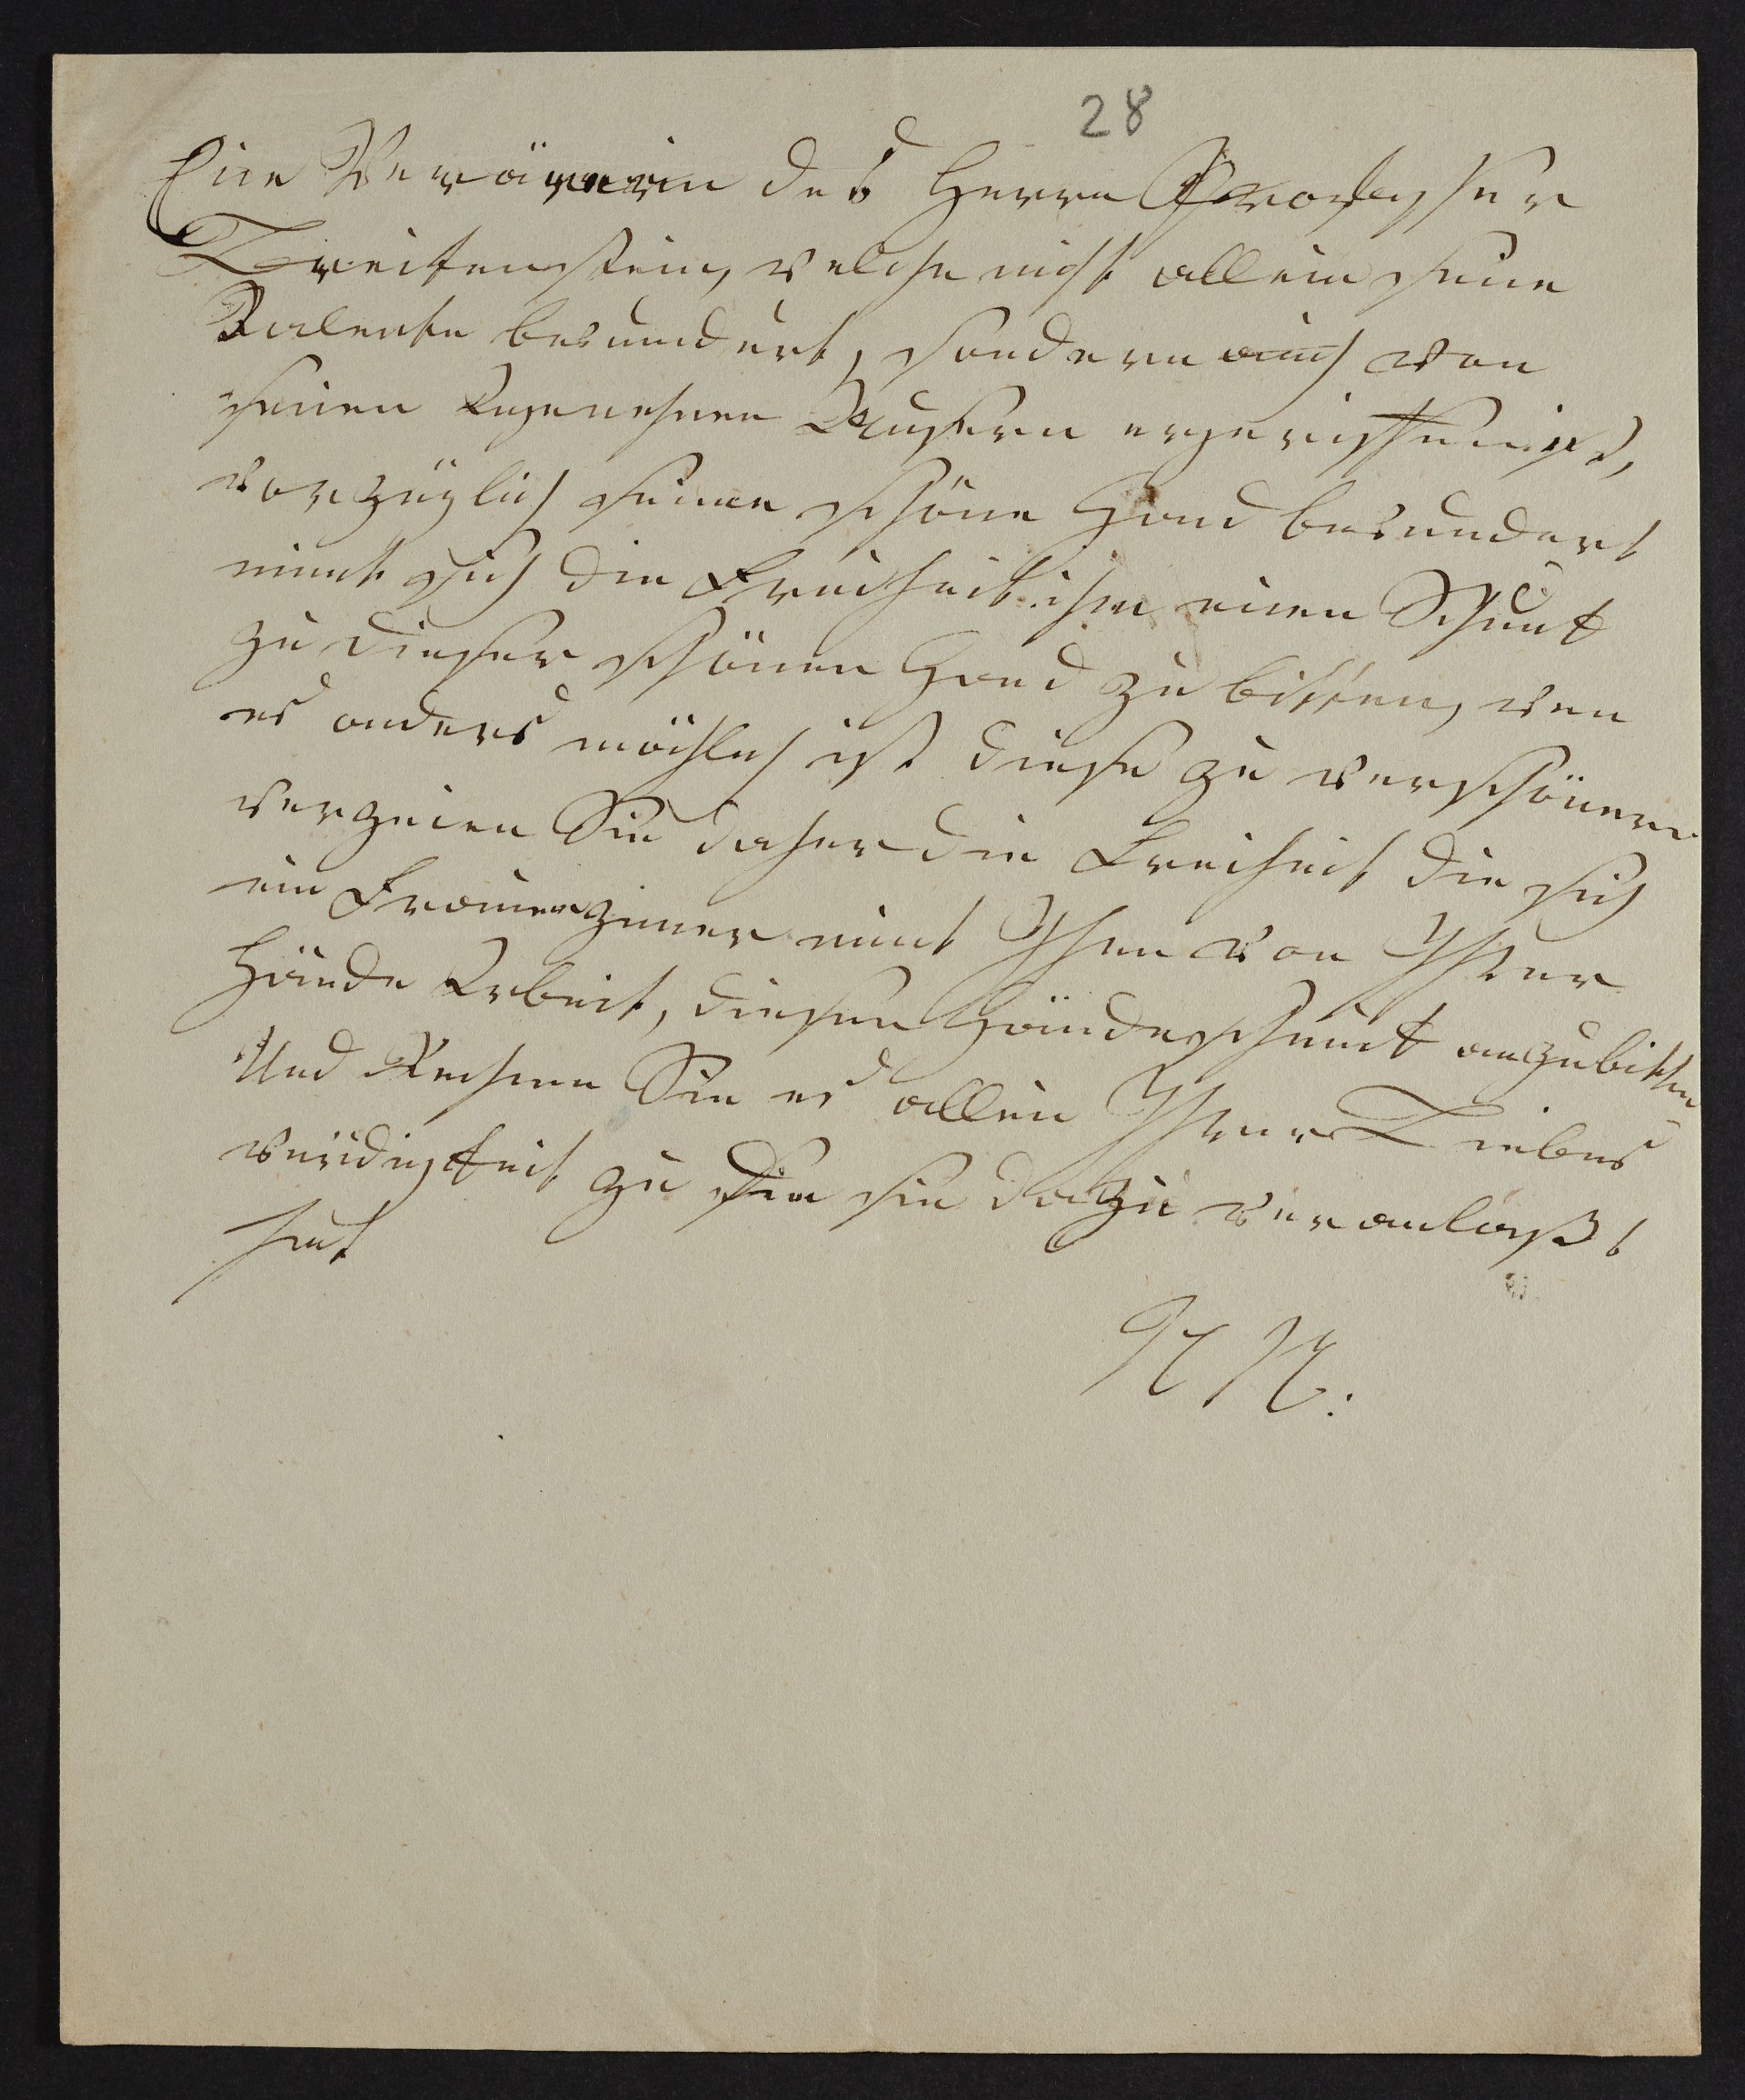 28
Eine Verärerin des Herrn Professer
Breitenstein, welche nicht allein seine
Talente bewundert, sondern auch von
seinen Angenehmen Äusern ergeriffen ist,
vorzüglich seine schöne Hand bewundert
nimt sich die Freiheit ihm einen Schmuk
zu dieser schönen Hand zu bitten, wen
es anders möchlich ist diese zu verschönern
verzeien Sie daher die Freiheit die sich
ein Frauenzimer nimt Ihnen von Ihrer
Hände Arbeit, diesen Händeschmuk anzubitten
Und Rechnen Sie es allein Ihrer Liebens
würdigkeit zu die sie dazu veranlaßt
hat
N N.